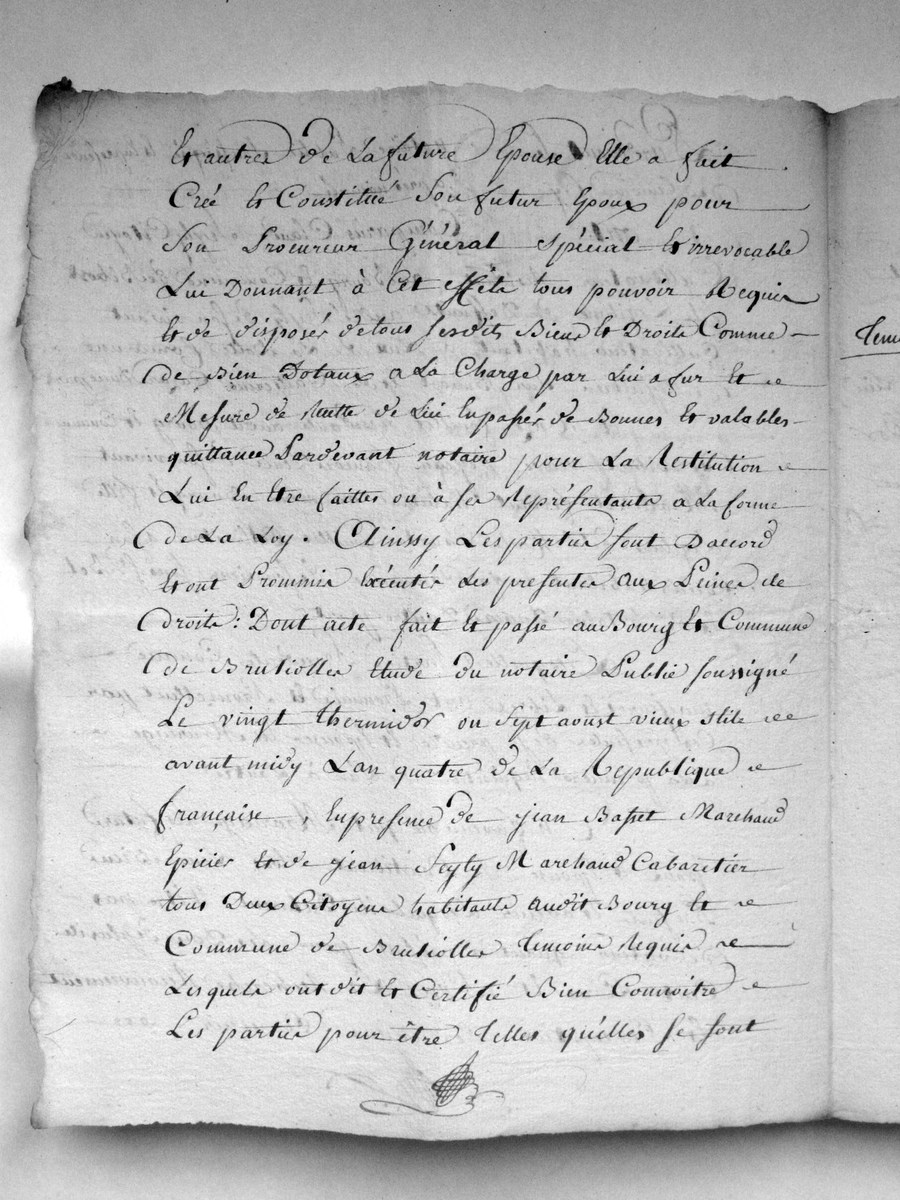 Et autres de La future Epouse Elle a fait
Créé Et Constitué Son futur Epoux pour
Son Procureur Général Spécial Et irrevocable
Lui Donnant à Cet Effets tous pouvoir Requis
Et de disposés de tous Sesdits Biens Et Droits Comme
de Bien Dotaux a La Charge par Lui a fur Et
Mesure de Recette de Lui En passés de Bonnes Et valables
quittances Pardevant notaire pour La Restitution
Lui En Etre faittes ou à ses Représentants a La forme
de La Loy. Ainssy Les parties sont Daccord
Et ont Prommis Exécutés Les presentes aux Peines de
droits : Dont acte fait Et passé au Bourg Et Commune
de Brusiolles Etude du notaire Publie soussigné
Le vingt thermidor ou Sept aoust vieux stile
avant midy Lan quatre de La Republique
française, En presence de jean Basset Marchand
Epicier Et de jean Feyty Marchand Cabaretier
tous Deux Citoyens habitants audit Bourg Et
Commune de Brusiolles Temoins Requis
Lesquels ont dit Et Certifié Bien Connoitre
Les parties pour être Telles qu'elles se sont
Tem